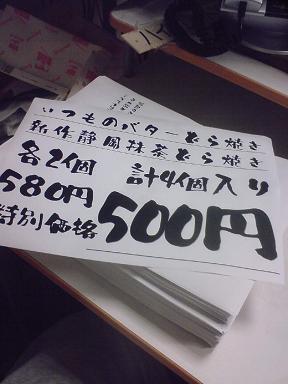 いつものバターどら焼き
新作静岡抹茶どら焼き
各2個 計4個入り
580円
特別価格500円